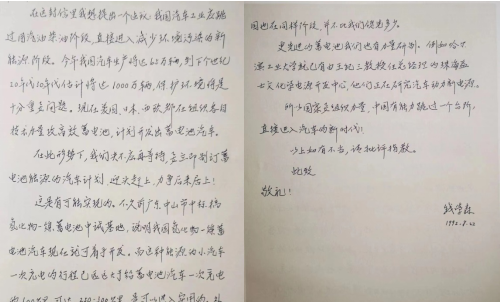 在这封信里我想提出一个建议:我国汽车工业应跳
过用汽油柴油阶段,直接进入减少环境污染的新
能源阶段。今年我国汽车生产将达62万辆,到下个世纪
20年代30年代估计将达1000万辆,保护环境将是
十分重要问题。现在美国、日本、西欧都在组织各自
技术力量攻高效蓄电池,计划开发出蓄电池汽车。
在此形势下,我们决不应再等待,应立即制订蓄
电池能源的汽车计划,迎头赶上,力争后来居上!
这是有可能实现的。不久前广东中山市中标搞
氢化物-镍蓄电池中试基地,说明我国氢化物-镍蓄
电池汽车现在就可着手开发。而这种能源的小汽车
一次充电的行程已远远大于铅蓄电池汽车一次充电
的100公里,可达250-300公里,是可以进入实用的。外
国也在同样阶段,并不比我们领先多少。
更先进的蓄电池我们也有力量研制。例如哈尔
滨工业大学就已有由王纪三教授任总经理的珠海益
士文化学电源开发中心,他们正在研究汽车动力新电源。
所以国家应组织力量,中国有能力跳过一个台阶,
直接进入汽车的新时代!
以上如有不当,请批评指教。
此致
敬礼!
钱学森
1992.8.22